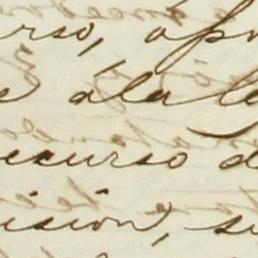 rso, apr
e á la le
ecurso d
isión, su